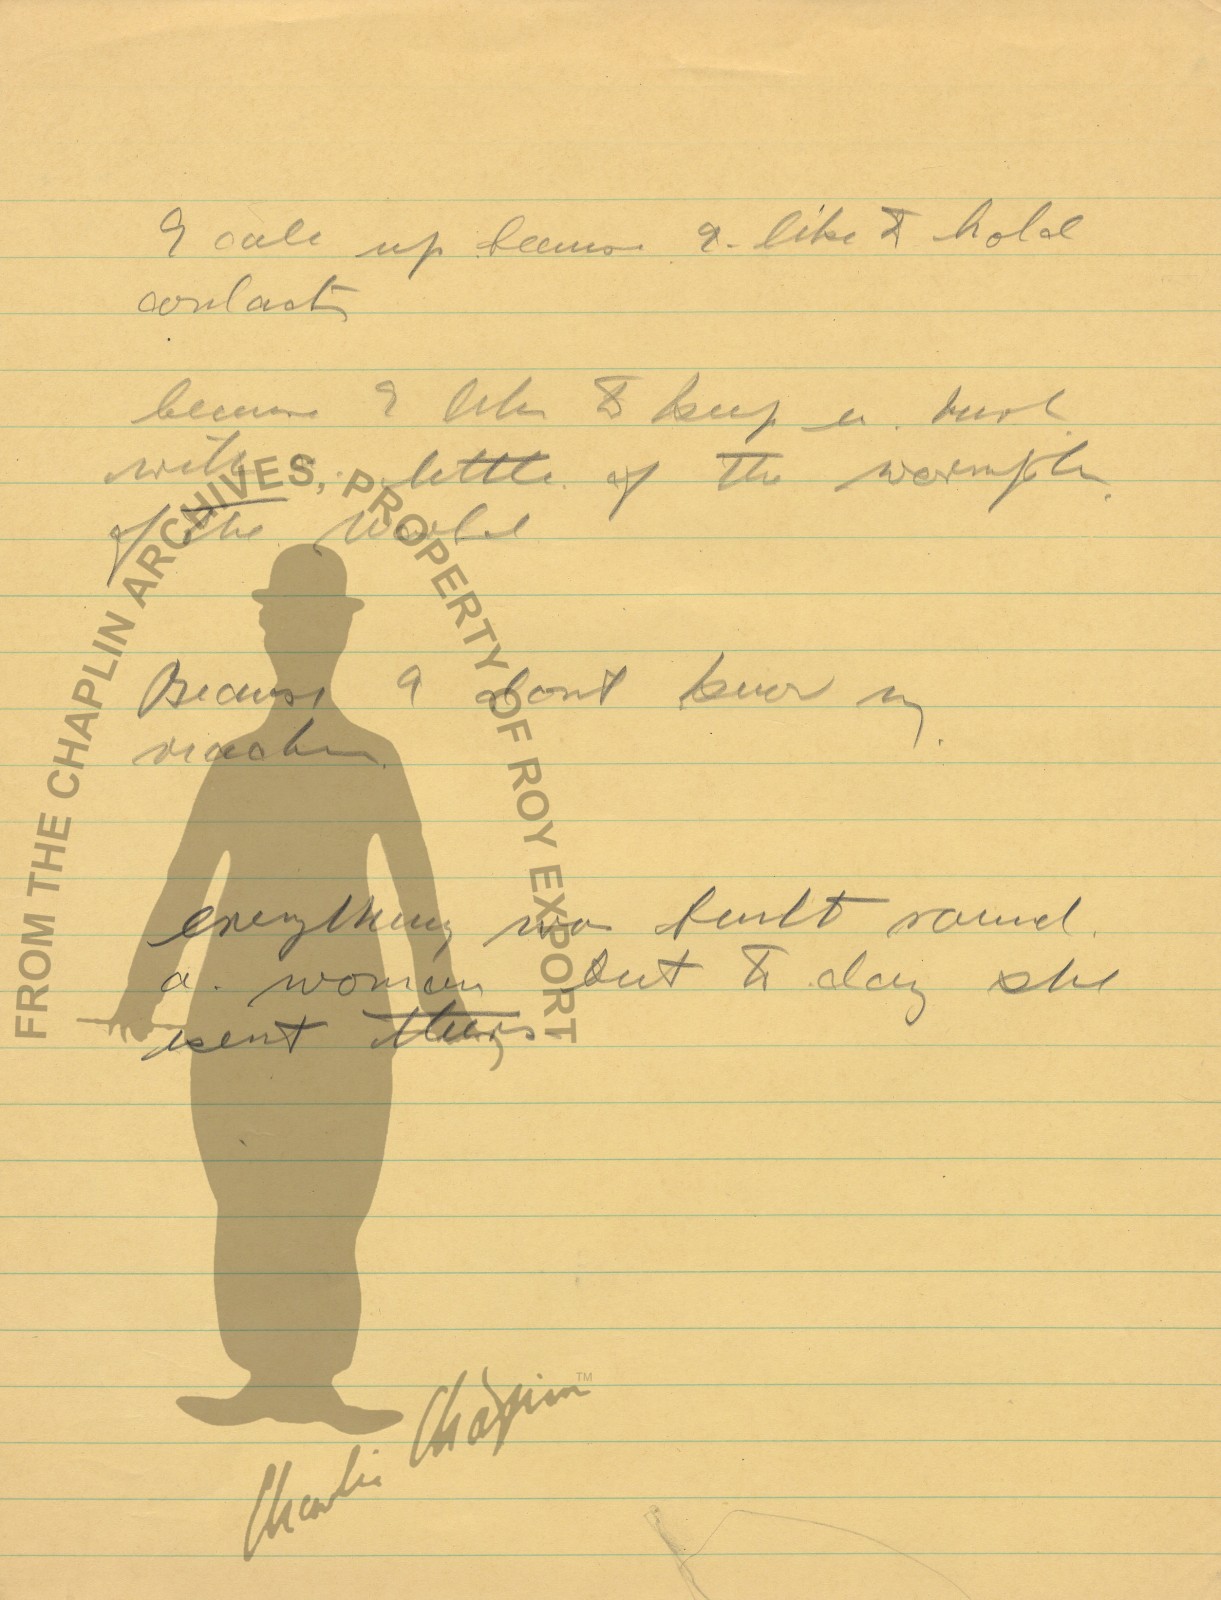 I call up because I like to hold
contacts
because I like to keep in
with little of the warmpth
of the World
Because I dont know my
reaction
everything was built round
a woman but to day she
isent there
FROM THE CHAPLIN ARCHIVES, PROPERTY OF ROY EXPORT
Charlie Chaplin™